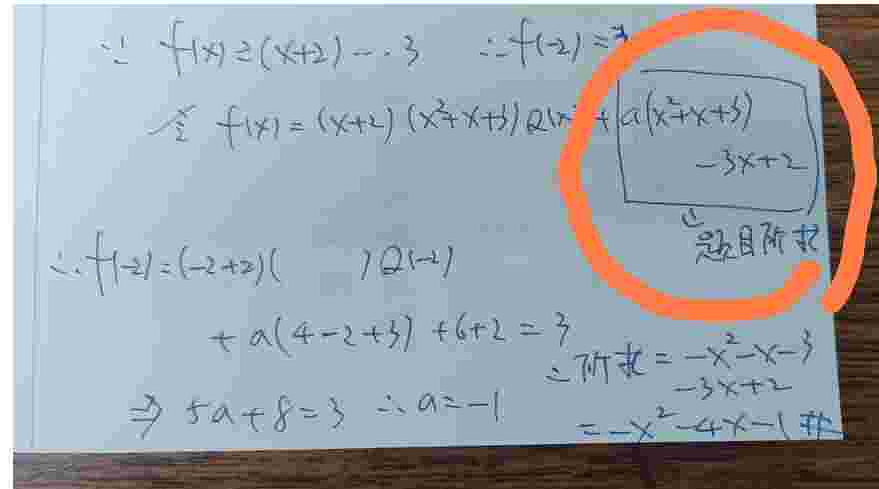 ∵ f(x)÷(x+2)…3 ∴f(-2)=3
令 f(x)=(x+2)(x²+x+3)Q(x)+a(x²+x+3)
-3x+2
題目所求
∴f(-2)=(-2+2)( )Q(-2)
+a(4-2+3)+6+2=3
⇒ 5a+8=3 ∴a=-1
∴所求=-x²-x-3
-3x+2
=-x²-4x-1 #